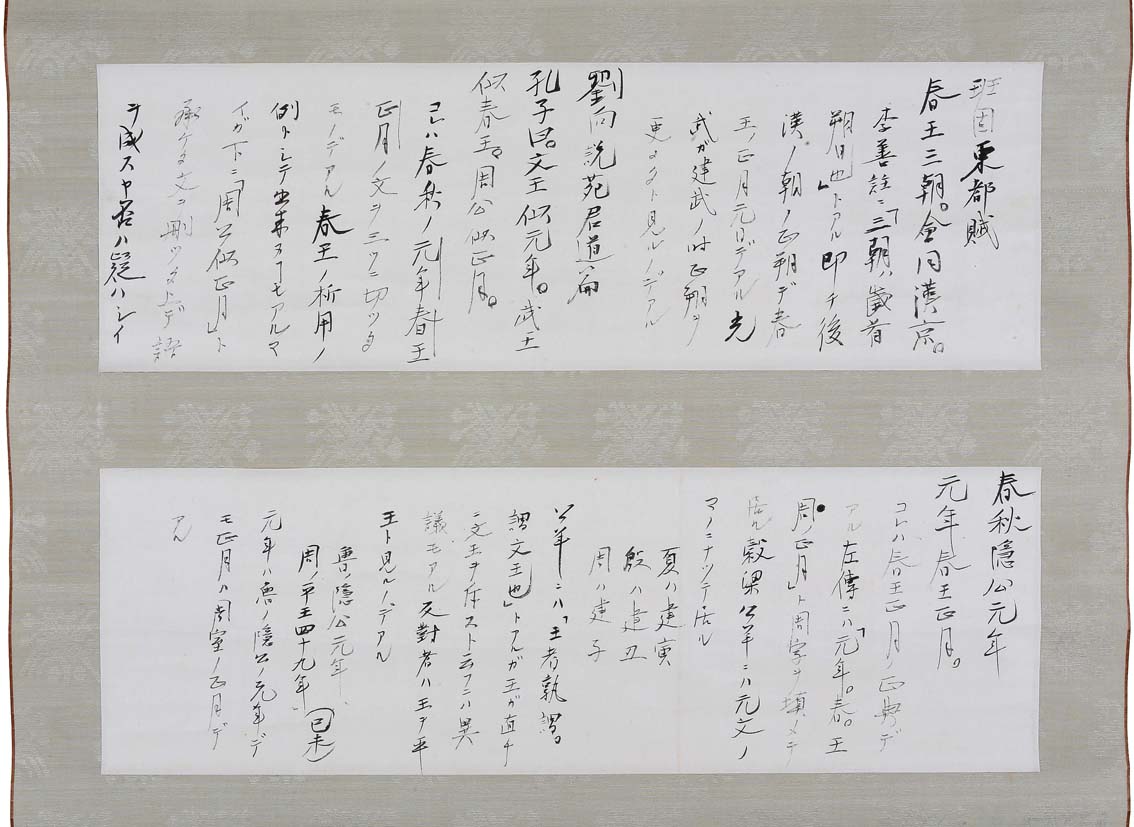 班固東都賦
春王三朝。會同漢京。
李善註ニ「三朝ハ歳首
朔日也」トアル即チ後
漢ノ朝ノ正朔デ春
王ノ正月元日デアル光
武ガ建武ノ時正朔ヲ
更メタト見ルノデアル
劉向説苑君道篇
孔子曰。文王似元年。武王
似春王。周公似正月。
コレハ春秋ノ元年春王
正月ノ文ヲ三ツニ切ツタ
モノデアル春王ノ析用ノ
例トシテ出来ヌコモアルマ
イガ下ニ「周公似正月」ト
承ケタ文ニ剛ツタ上デ語
ヲ成スヤ否ハ疑ハシイ
春秋隱公元年
元年春王正月。
コレハ春王正月ノ正典デ
アル左傳ニハ「元年。春。王
周正月」ト周字ヲ塡メテ
居ル穀梁公羊ニハ元文ノ
マノニナツテ居ル
夏ハ建寅
殷ハ建丑
周ハ建子
公羊ニハ「王者孰謂。
謂文王也」トアルガ王ガ直チ
ニ文王ヲ斥スト云フニハ異
議モアル反對者ハ王ヲ平
王ト見ルノデアル
魯ノ隱公元年
周ノ平王四十九年(己未)
元年ハ魯ノ隱公ノ元年デ
モ正月ハ周室ノ正月デ
アル